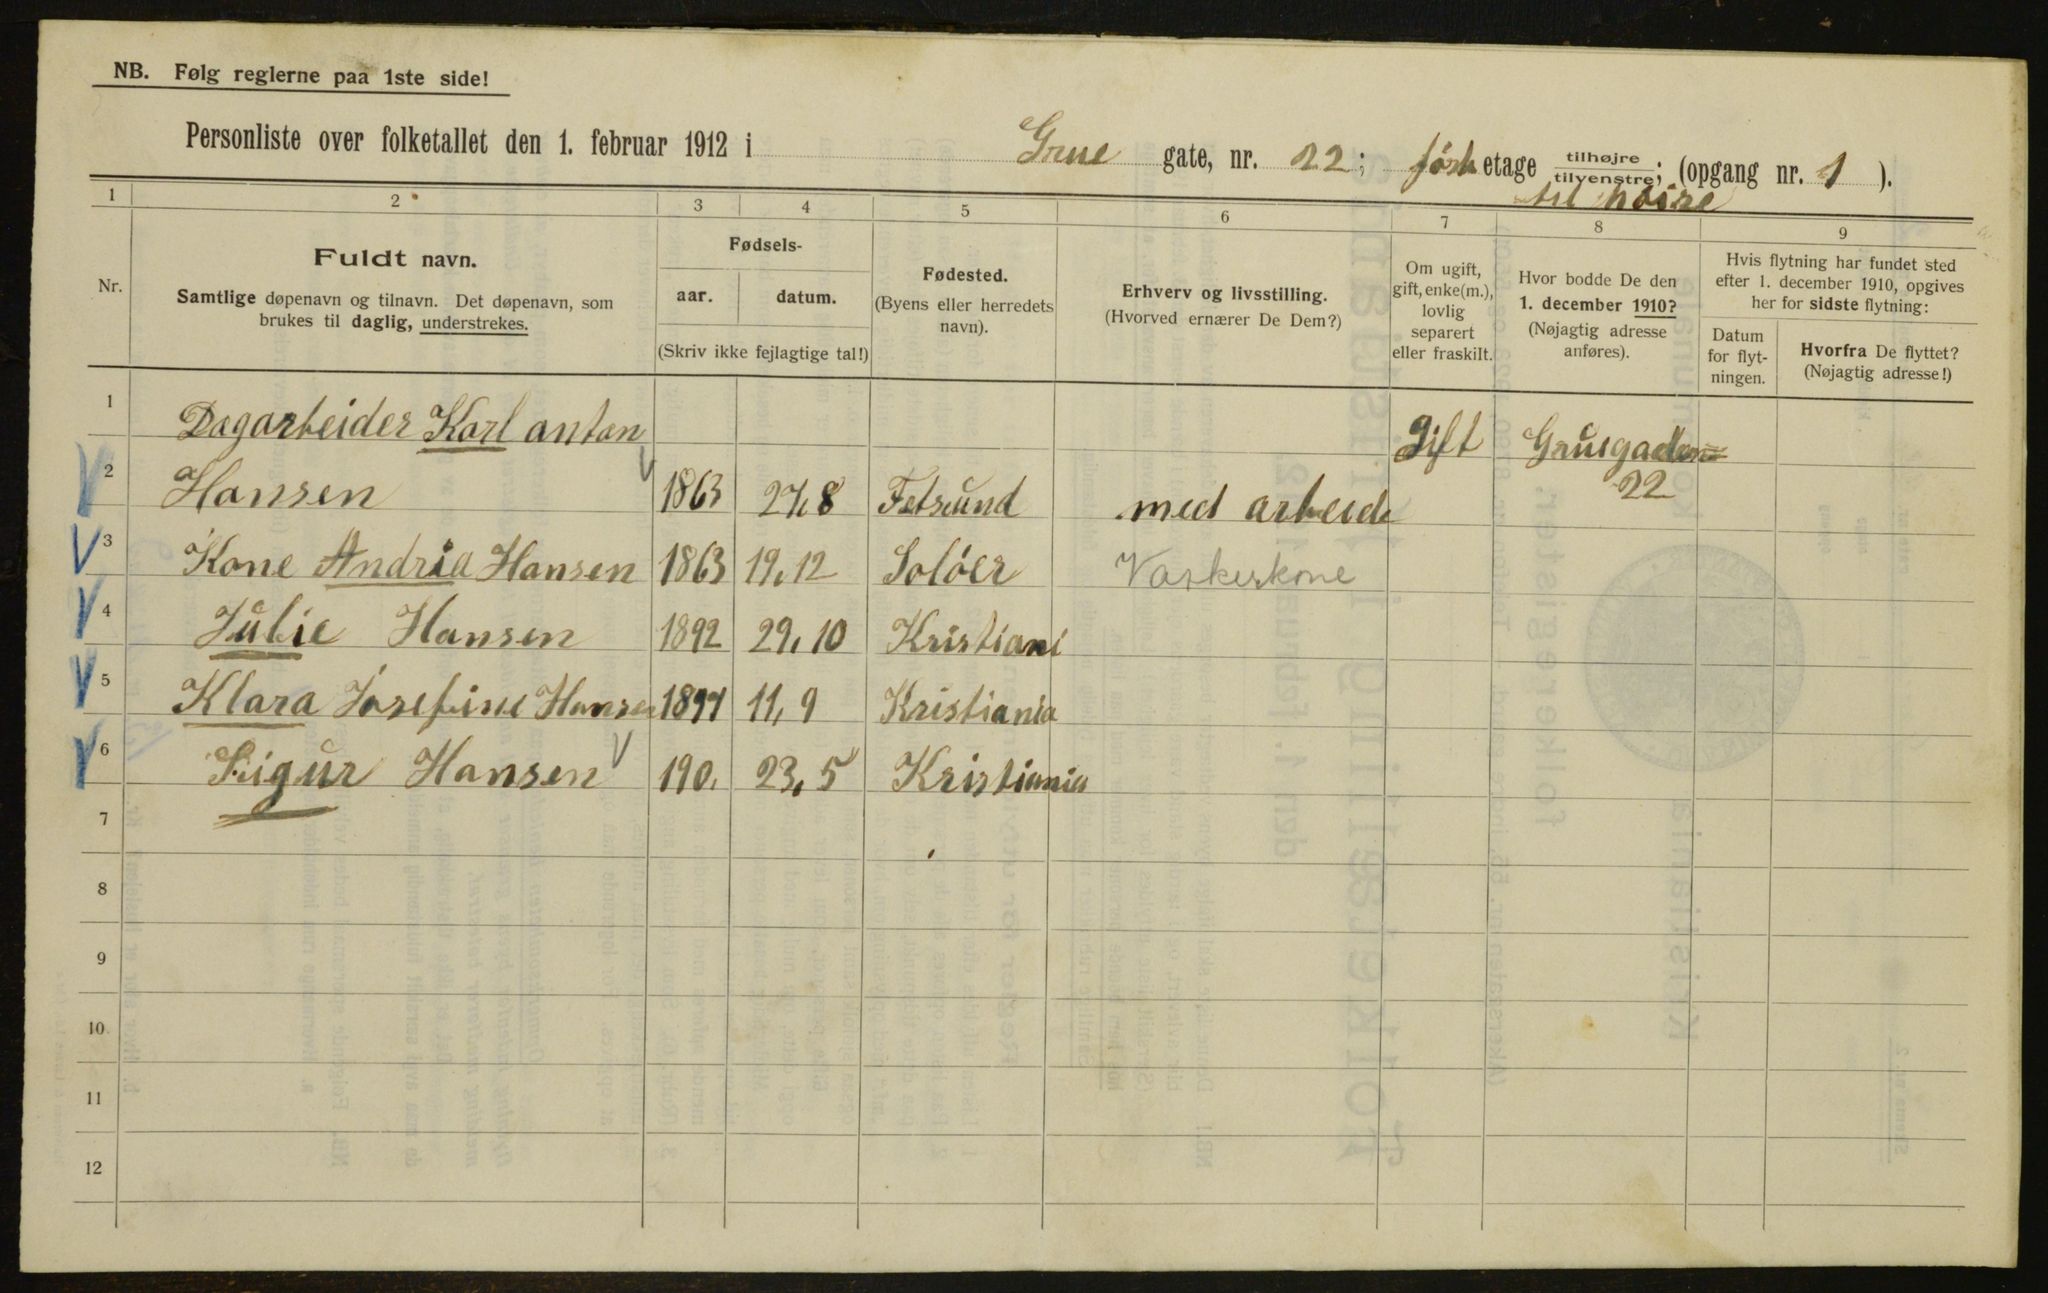 NB. Følg reglerne paa 1ste side!
Personliste over folketallet den 1. februar 1912 i Grue gate, nr. 22; førsk etage tilhøjre tilvenstre; (opgang nr. 1 ).
til høire
1 2 3 4 5 6 7 8 9
Nr.
Fuldt navn.
Samtlige døpenavn og tilnavn. Det døpenavn, som
brukes til daglig, understrekes.
Fødsels-
aar. datum.
(Skriv ikke fejlagtige tal!)
Fødested.
(Byens eller herredets
navn).
Erhverv og livsstilling.
(Hvorved ernærer De Dem?)
Om ugift,
gift, enke(m.),
lovlig
separert
eller fraskilt.
Hvor bodde De den
1. december 1910?
(Nøjagtig adresse
anføres).
Hvis flytning har fundet sted
efter 1. december 1910, opgives
her for sidste flytning:
Datum
for flyt-
ningen.
Hvorfra De flyttet?
(Nøjagtig adresse!)
1 Dagarbeider Karl anton Gift Gruegaden
2 Hansen 1863 27,8 Fetsund med arbeide 22
3 Kone Andria Hansen 1863 19,12 Solöer Vaskerkone
4 Julie Hansen 1892 29,10 Kristiani
5 Klara Josefine Hansen 1897 11,9 Kristiania
6 Sigur Hansen 190. 23,5 Kristiania
7
8
9
10
11
12